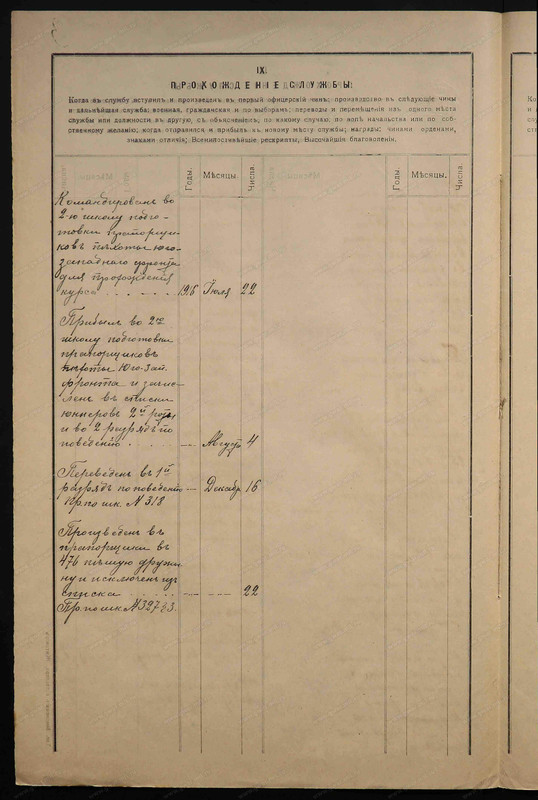 IX.
ПРОХОЖДЕНІЕ СЛУЖБЫ:
Когда въ службу вступилъ и произведенъ въ первый офицерскій чинъ; производство въ слѣдующіе чины
и дальнѣйшая служба: военная, гражданская и по выборамъ; переводы и перемѣщенія изъ одного мѣста
службы или должности въ другую, съ объясненіемъ: по какому случаю; по волѣ начальства или по соб-
ственному желанію; когда отправился и прибылъ къ новому мѣсту службы; награды: чинами орденами,
знаками отличія; Всемилостивѣйшіе рескрипты, Высочайшія благоволенія.
Годы. Мѣсяцы. Числа. Годы. Мѣсяцы. Числа.
Командированъ во
2-ю школу подго-
товки прапорщи-
ковъ пѣхоты Юго-
западнаго фронта
для прохожденія
курса 1916 Іюля 22
Прибылъ во 2-ю
школу подготовки
прапорщиковъ
пѣхоты Юго-Зап.
фронта и зачис-
ленъ въ списки
юнкеровъ 2й роты
и во 2 разрядъ по
поведенію — Августа 4
Переведенъ въ 1й
разрядъ по поведенію — Декабря 16
Пр. по шк. N 318
Произведенъ въ
прапорщики въ
476 пѣшую дружи
ну и исключенъ изъ
списка — — 22
Пр. по шк N 327 §3.